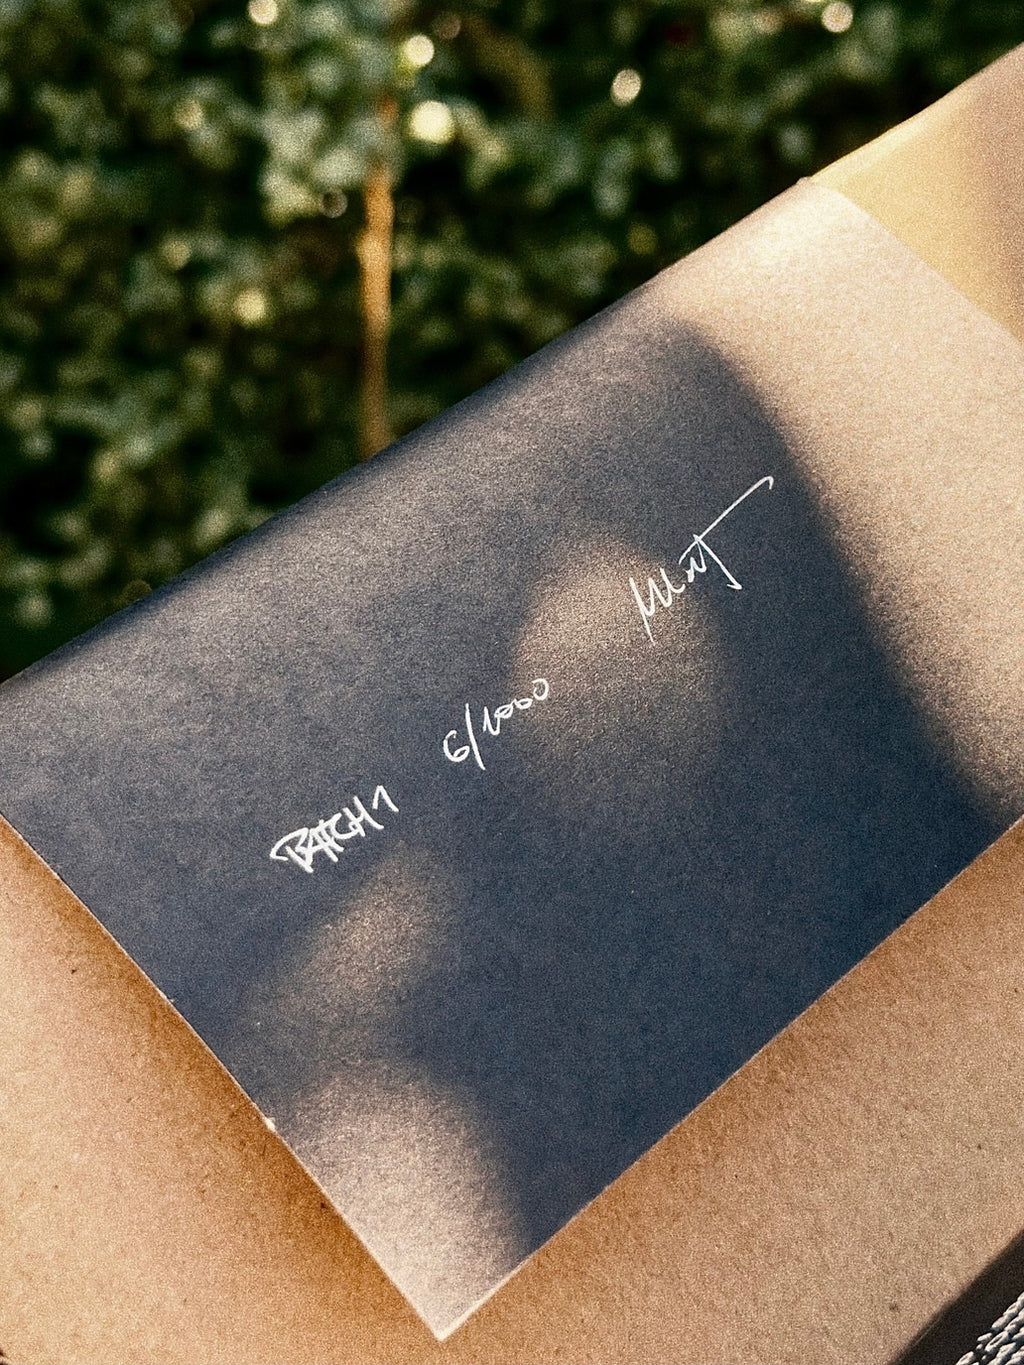 BATCH 1 6/1000